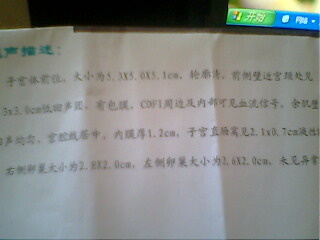 开始
网络
声描述：
子宫体前位，大小为5.3X5.0X5.1cm，轮廓清，前侧壁近宫颈处见
3x3.0cm低回声团，有包膜，CDFI周边及内部可见血流信号，余肌壁
声均匀，宫腔线居中，内膜厚1.2cm，子宫直肠窝见2.1x0.7cm液性
右侧卵巢大小为2.8X2.0cm，左侧卵巢大小为2.6X2.0cm，未见异常